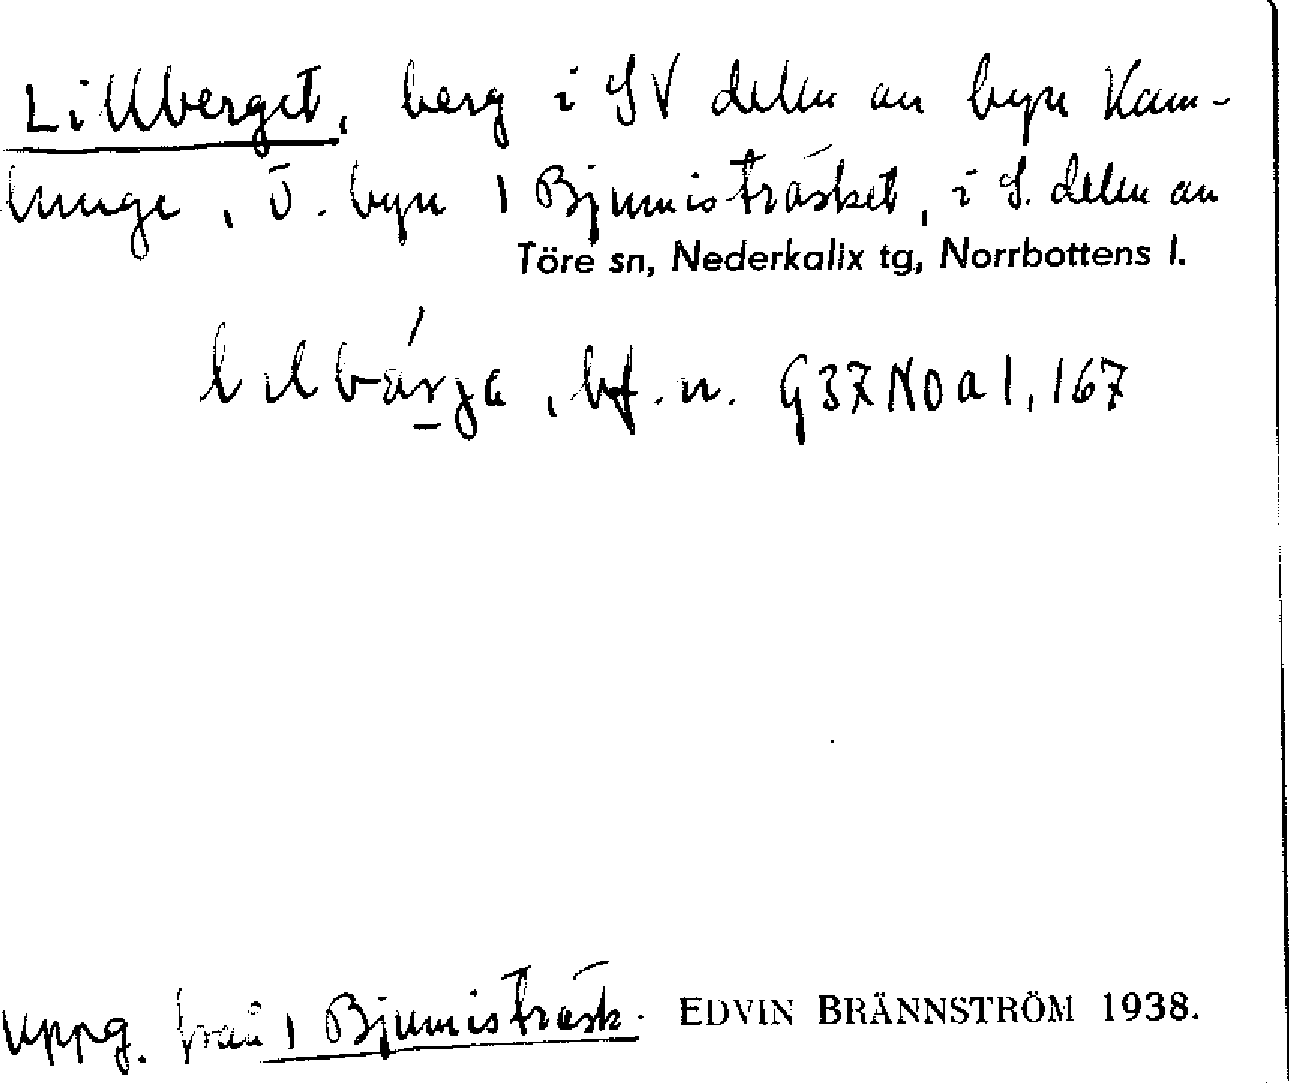 Lillberget, berg i SV delen av byn Kam-
lunge, ö. byn 1 Bjumisträsket, i S. delen av
Töre sn, Nederkalix tg, Norrbottens l.
lɩlbárʒa, bf. n. G37NOa1, 167
Uppg. från 1 Bjumisträsk. EDVIN BRÄNNSTRÖM 1938.